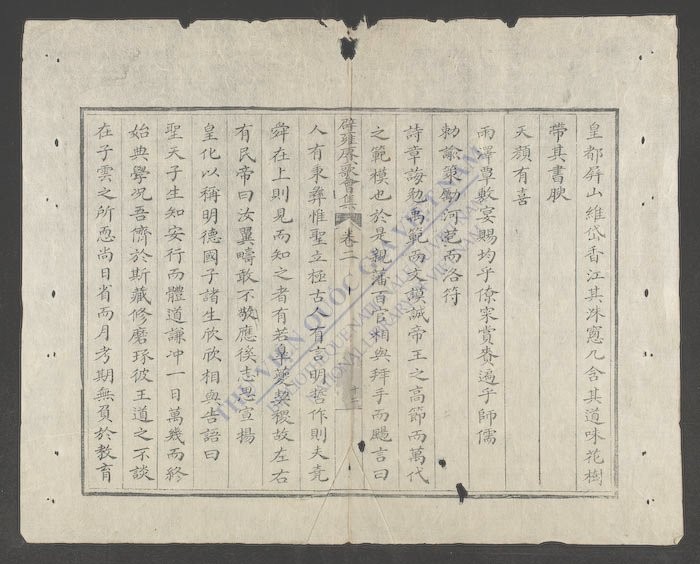 皇都屏山維岱香江其洙窓几含其道味花樹
帶其書腴
天顏有喜
雨澤覃敷宴賜均乎僚寀賞賚遍乎師儒
勅諭策勵河苞而洛符
詩章誨勉禹範而文謨誠帝王之高節而萬代
之範模也於是親藩百官相與拜手而颺言曰
辟雍賡歌會集 卷二
十三
人有秉彝惟聖立極古人有言明哲作則夫堯
舜在上則見而知之者有若皐夔契稷故左右
有民帝曰汝翼疇敢不敬應徯志思宣揚
皇化以稱明德國子諸生欣欣相與告語曰
聖天子生知安行而體道謙冲一日萬幾而終
始典學况吾儕於斯藏修磨琢彼王道之不談
在子雲之所恧尚日省而月考期無負於教育
THƯ VIỆN QUỐC GIA VIỆT NAM
BIBLIOTHÈQUE NATIONALE DU VIETNAM
NATIONAL LIBRARY OF VIETNAM